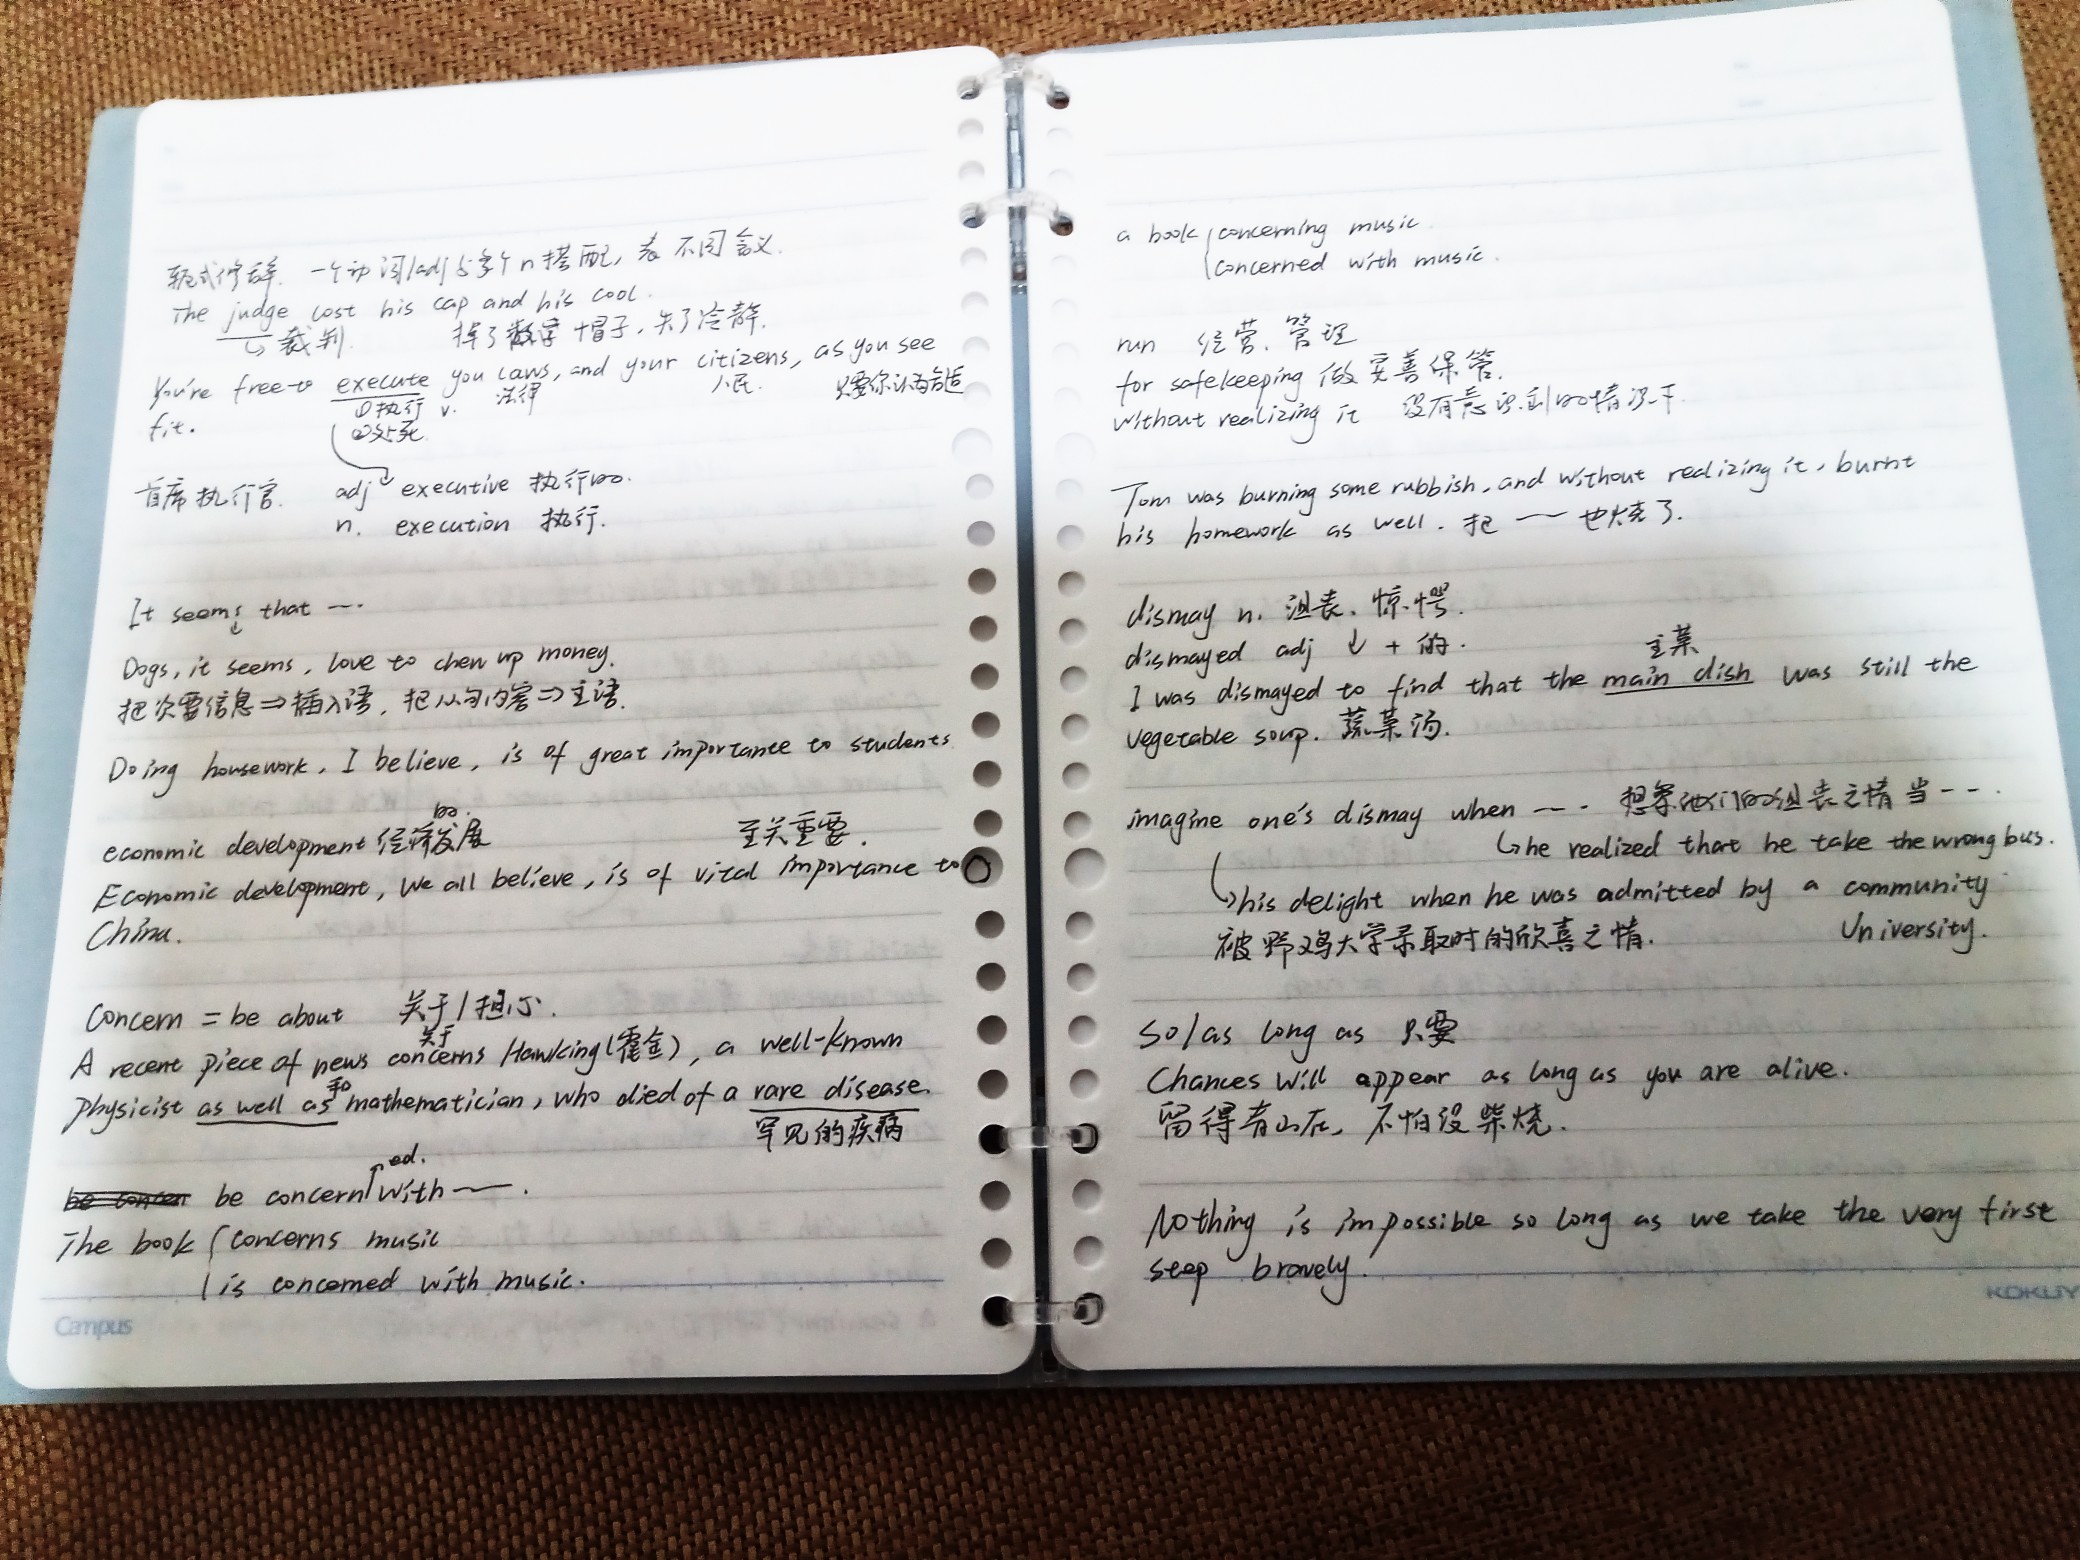 轭式修辞. 一个动词/adj 与多个n搭配, 表不同含义.
The judge lost his cap and his cool.
↳裁判. 掉了帽子, 失了冷静.
You're free to execute you laws, and your citizens, as you see
①执行 v. 法律 人民. 只要你认为合适
fit. ②处死
首席执行官. adj executive 执行的.
n. execution 执行.
It seems that ---.
Dogs, it seems, love to chew up money.
把次要信息⇒插入语, 把从句内容⇒主语.
Doing housework, I believe, is of great importance to students
的.
economic development 经济发展 至关重要.
Economic development, we all believe, is of vital importance to
China.
Concern = be about 关于/担心.
关于
A recent piece of news concerns Hawking(霍金), a well-known
和
physicist as well as mathematician, who died of a rare disease.
罕见的疾病
ed.
be concern with ——.
The book { concerns music
is concerned with music.
Campus
a book { concerning music.
concerned with music.
run 经营、管理
for safekeeping 做妥善保管.
without realizing it 没有意识到的情况下
Tom was burning some rubbish, and without realizing it, burnt
his homework as well. 把 —— 也烧了.
dismay n. 沮丧、惊愕.
dismayed adj ↓ + 的.
主菜
I was dismayed to find that the main dish was still the
vegetable soup. 蔬菜汤.
imagine one's dismay when ---. 想象他们的沮丧之情当---.
↳he realized that he take the wrong bus.
↳his delight when he was admitted by a community
被野鸡大学录取时的欣喜之情. University.
So/as long as 只要
Chances will appear as long as you are alive.
留得青山在, 不怕没柴烧.
Nothing is impossible so long as we take the very first
step bravely.
KOKUY